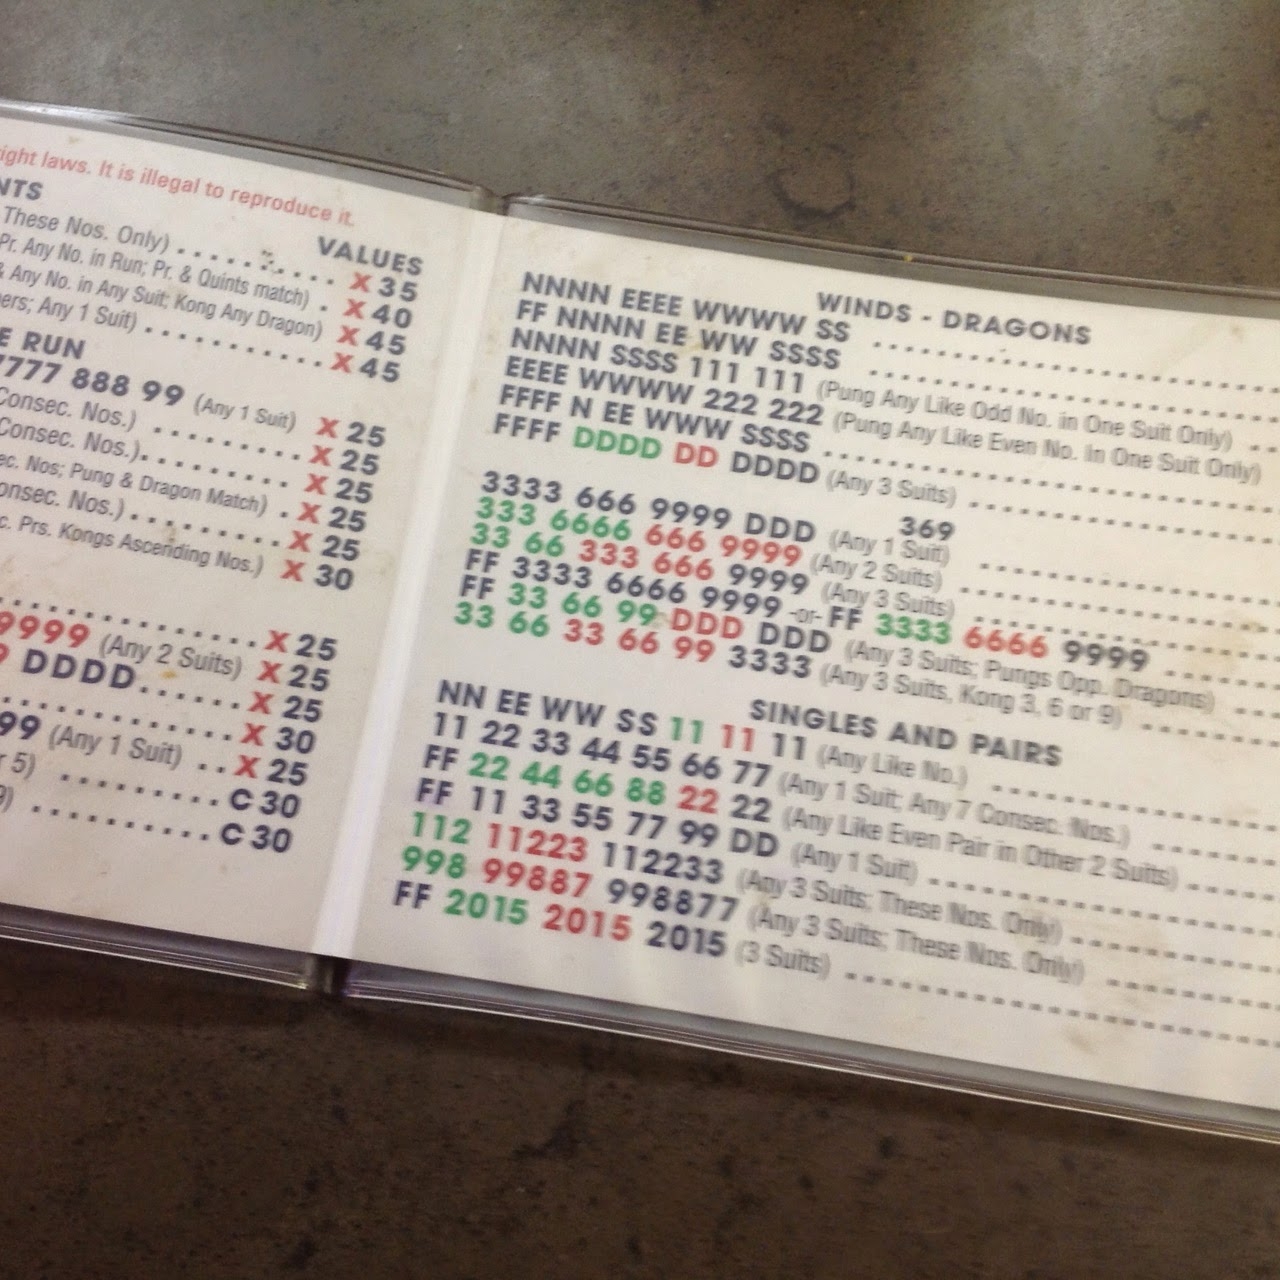 ight laws. It is illegal to reproduce it.
NTS
VALUES
These Nos. Only) . . . . . . . . . . . . X 35
Pr. Any No. in Run; Pr. & Quints match) . X 40
& Any No. in Any Suit; Kong Any Dragon) X 45
ers; Any 1 Suit) . . . . . . . . . . . . . X 45
E RUN
7777 888 99 (Any 1 Suit) X 25
Consec. Nos.) . . . . . . . . . X 25
Consec. Nos.). . . . . . . . . X 25
ec. Nos; Pung & Dragon Match) . X 25
onsec. Nos.) . . . . . . . . . . X 25
c. Prs. Kongs Ascending Nos.) X 30
. . . . . . . . . . . . . . . . X 25
9999 (Any 2 Suits) X 25
9 DDDD. . . . . . X 25
. . . . . . . . . . . . . X 30
99 (Any 1 Suit) . . X 25
r 5) . . . . . . . . . C 30
9) . . . . . . . . . . . C 30
WINDS - DRAGONS
NNNN EEEE WWWW SS
FF NNNN EE WW SSSS
NNNN SSSS 111 111 (Pung Any Like Odd No. in One Suit Only)
EEEE WWWW 222 222 (Pung Any Like Even No. In One Suit Only)
FFFF N EE WWW SSSS
FFFF DDDD DD DDDD (Any 3 Suits)
369
3333 666 9999 DDD (Any 1 Suit)
333 6666 666 9999 (Any 2 Suits)
33 66 333 666 9999 (Any 3 Suits)
FF 3333 6666 9999 -or- FF 3333 6666 9999
FF 33 66 99 DDD DDD (Any 3 Suits; Pungs Opp. Dragons)
33 66 33 66 99 3333 (Any 3 Suits, Kong 3, 6 or 9)
SINGLES AND PAIRS
NN EE WW SS 11 11 11 (Any Like No.)
11 22 33 44 55 66 77 (Any 1 Suit; Any 7 Consec. Nos.)
FF 22 44 66 88 22 22 (Any Like Even Pair in Other 2 Suits)
FF 11 33 55 77 99 DD (Any 1 Suit)
112 11223 112233 (Any 3 Suits; These Nos. Only)
998 99887 998877 (Any 3 Suits; These Nos. Only)
FF 2015 2015 2015 (3 Suits)